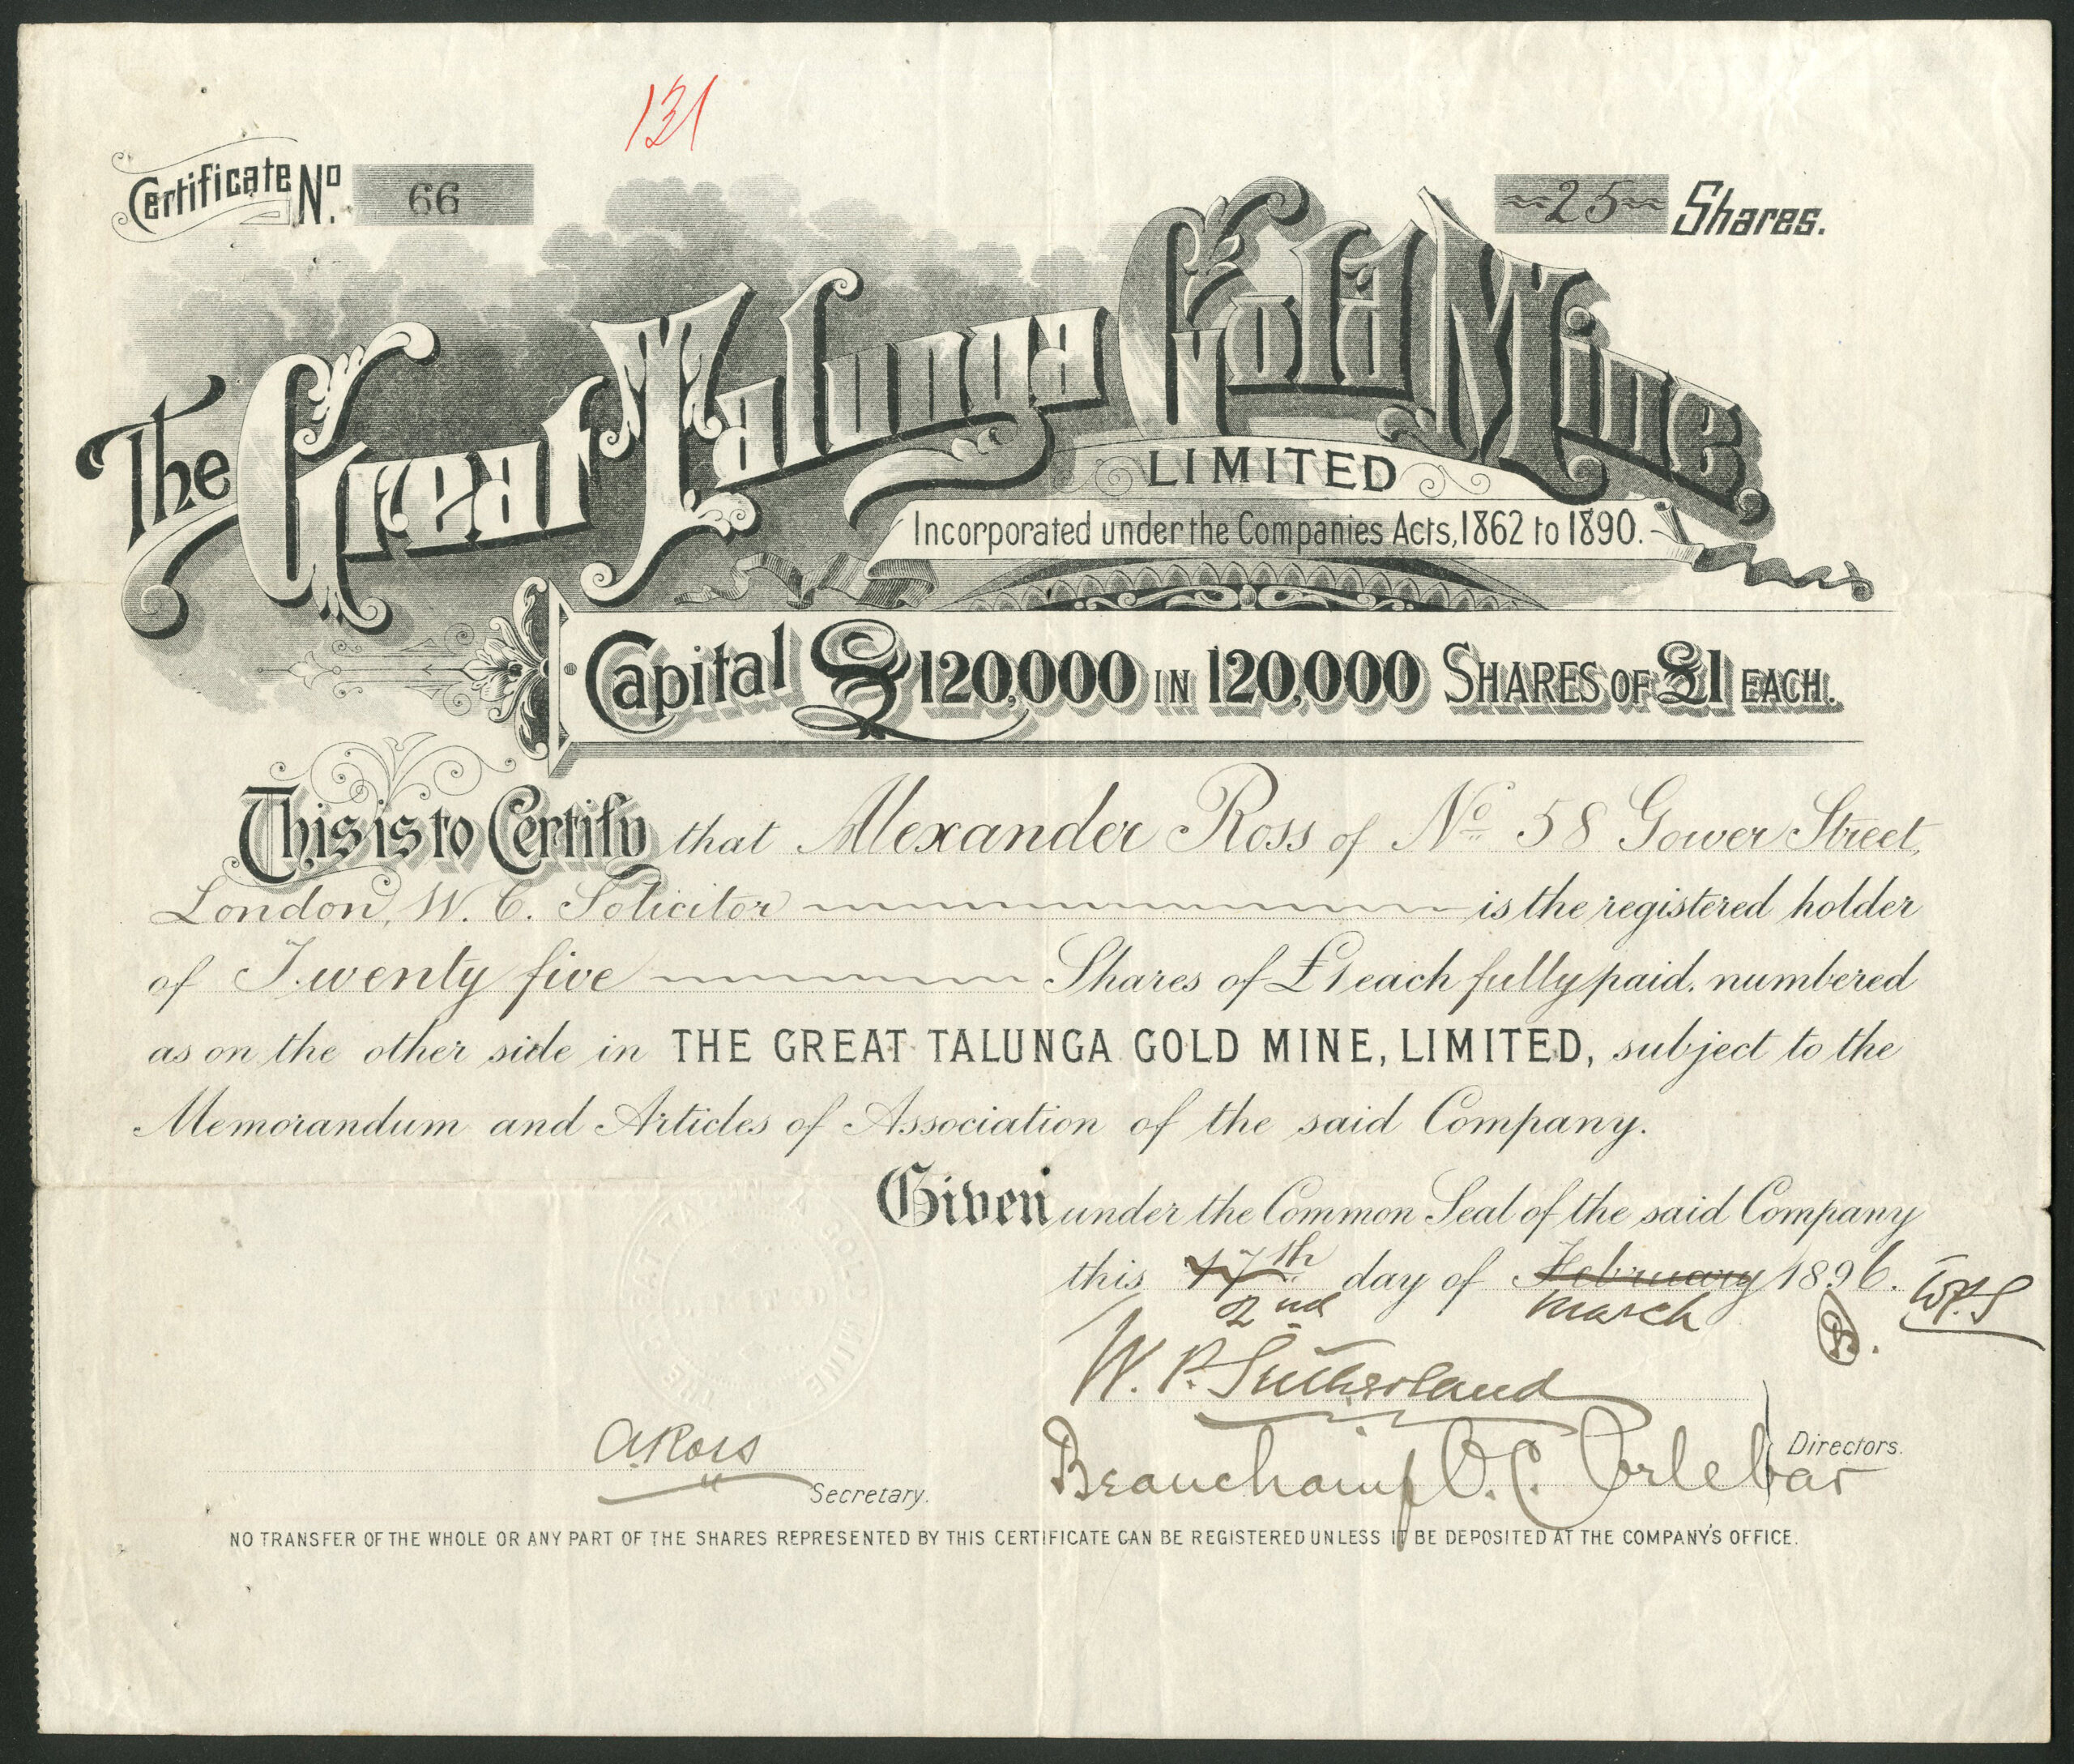 131
Certificate No. 66
25 Shares.
The Great Talunga Gold Mine,
LIMITED
Incorporated under the Companies Acts, 1862 to 1890.
Capital £120,000 IN 120,000 SHARES OF £1 EACH.
This is to Certify that Alexander Ross of No 58 Gower Street,
London, W. C. Solicitor is the registered holder
of Twenty five Shares of £1 each fully paid. numbered
as on the other side in THE GREAT TALUNGA GOLD MINE, LIMITED, subject to the
Memorandum and Articles of Association of the said Company.
Given under the Common Seal of the said Company
this 17th day of February 1896. W.P.S
2nd March
W. P. Sutherland
Beauchamp O. C. Orlebar
Directors.
A. Ross
Secretary.
NO TRANSFER OF THE WHOLE OR ANY PART OF THE SHARES REPRESENTED BY THIS CERTIFICATE CAN BE REGISTERED UNLESS IT BE DEPOSITED AT THE COMPANY'S OFFICE.